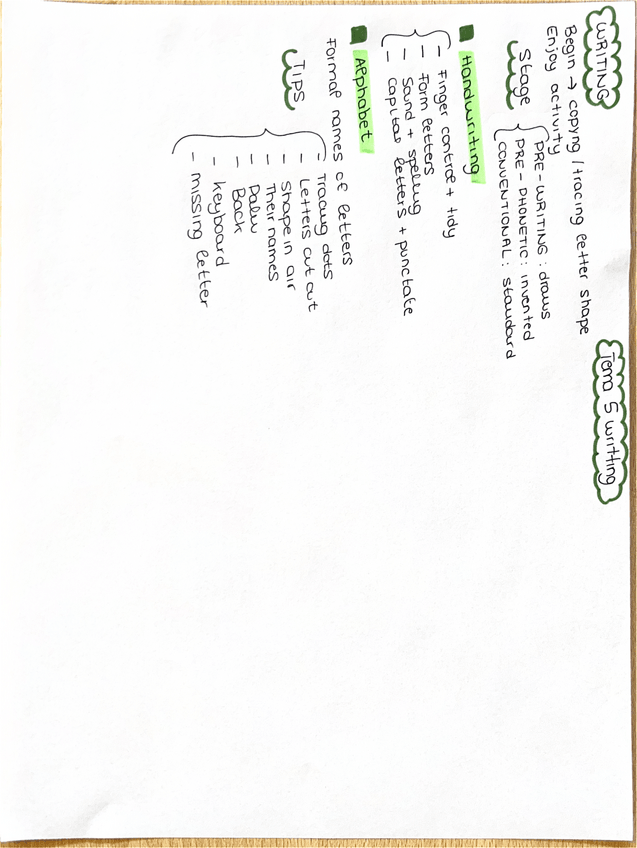 Tema 5 writting
WRITING
Begin → copyng / tracing letter shape
Enjoy activity
Stage
PRE-WRITING: draws
PRE-PHONETIC: invented
CONVENTIONAL: standard
Handwriting
- Finger control + tidy
- Form letters
- Sound + spelling
- Capital letters + punctuate
Alphabet
Formal names of letters
Tips
- Tracing dots
- Letters cut out
- Shape in air
- Their names
- Palm
- Back
- Keyboard
- missing letter